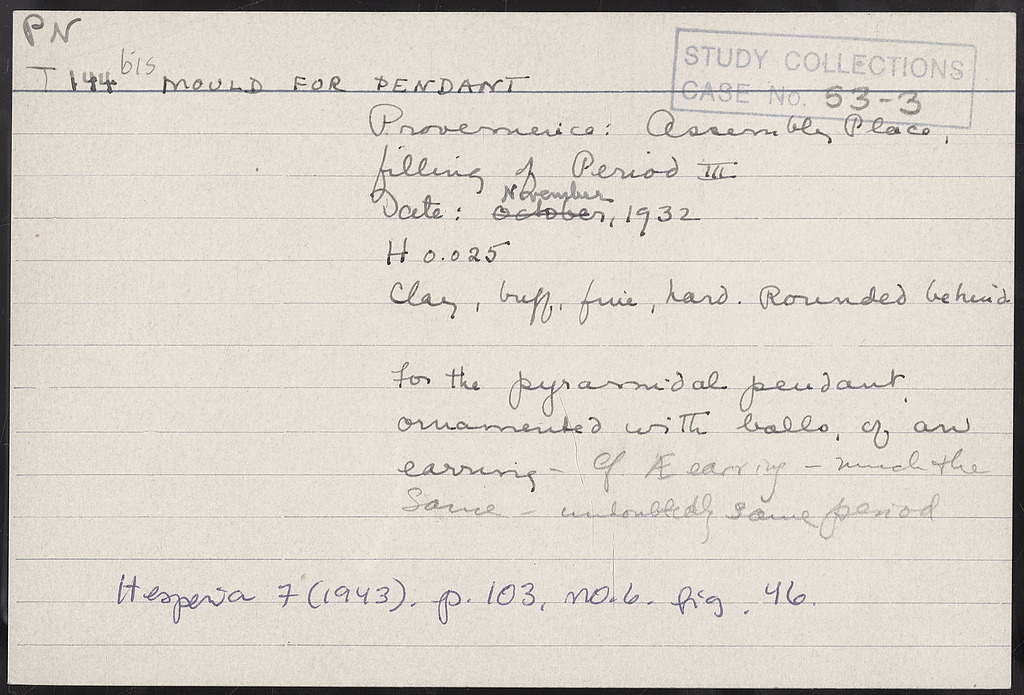 PN
T 144 bis MOULD FOR PENDANT
STUDY COLLECTIONS
CASE No. 53-3
Provenience: Assembly Place,
filling of Period III
Date: October, November 1932
H 0.025
Clay, buff, fine, hard. Rounded behind
For the pyramidal pendant
ornamented with balls, of an
earring - Cf Æ earring - much the
same - undoubtedly same period
Hesperia 7 (1943). p. 103, no. 6. fig. 46.